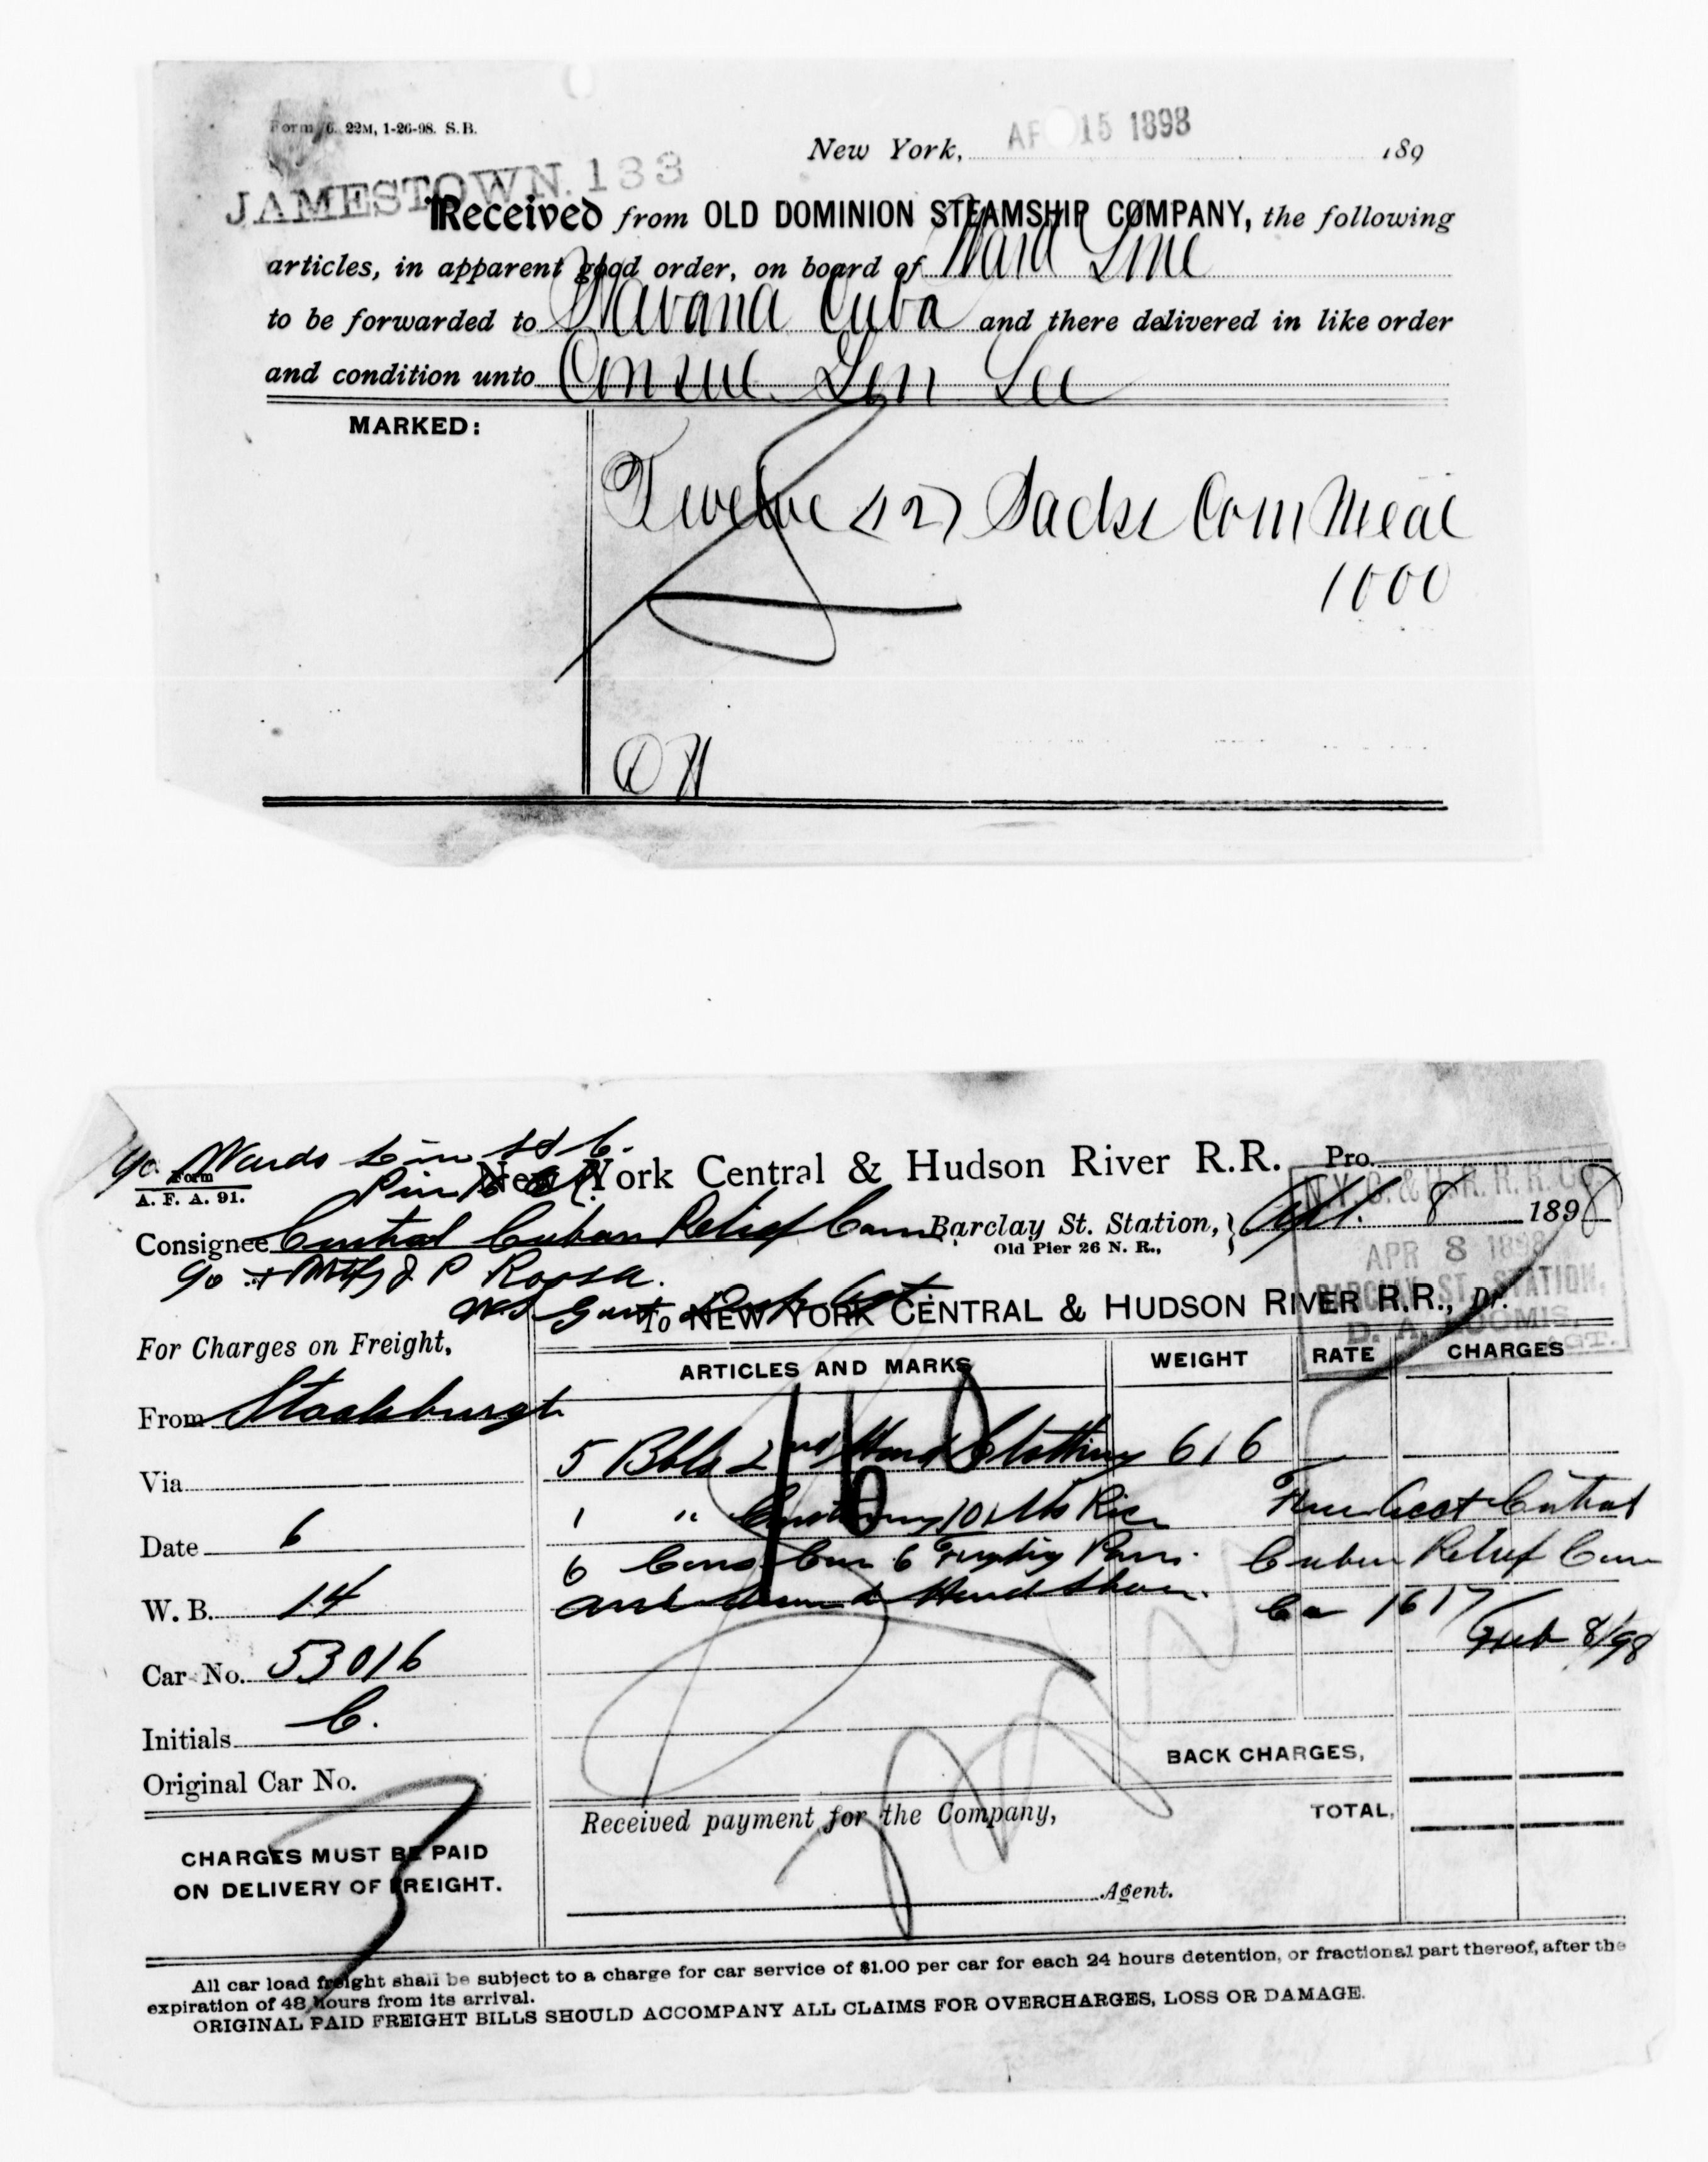 Form 6. 22M, 1-26-98. S.B.
New York, AP 15 1898 189
JAMESTOWN. 133
Received from OLD DOMINION STEAMSHIP COMPANY, the following
articles, in apparent good order, on board of Ward Line
to be forwarded to Havana Cuba and there delivered in like order
and condition unto Consul Gen Lee
MARKED:
Twelve (12) Sacks Corn Meal
1000
OH
c/o Wards Line SS Co.
Form
A. F. A. 91.
New York Central & Hudson River R.R. Pro.
N.Y.C. & H.R. R.R. Co.
Consignee Central Cuban Relief Com Barclay St. Station, } Apl. 8 1898
Old Pier 26 N. R.,
APR 8 1898
BARCLAY ST. STATION,
D. A. LOOMIS,
AGT.
c/o J P Roosa.
To NEW YORK CENTRAL & HUDSON RIVER R.R., Dr.
For Charges on Freight,
ARTICLES AND MARKS WEIGHT RATE CHARGES
From Staatsburgh
5 Bbls 2nd Hand Clothing 616
Via
1 " Containing 10 Lbs Rice Free Acct Central
Date 6
6 Cans 6 Frying Pans. Cuban Relief Com
W. B. 14
and Hand Shoes. 1617
Feb 8/98
Car No. 53016
Initials C.
Original Car No.
BACK CHARGES,
TOTAL,
Received payment for the Company,
CHARGES MUST BE PAID
ON DELIVERY OF FREIGHT.
Agent.
All car load freight shall be subject to a charge for car service of $1.00 per car for each 24 hours detention, or fractional part thereof, after the
expiration of 48 hours from its arrival.
ORIGINAL PAID FREIGHT BILLS SHOULD ACCOMPANY ALL CLAIMS FOR OVERCHARGES, LOSS OR DAMAGE.